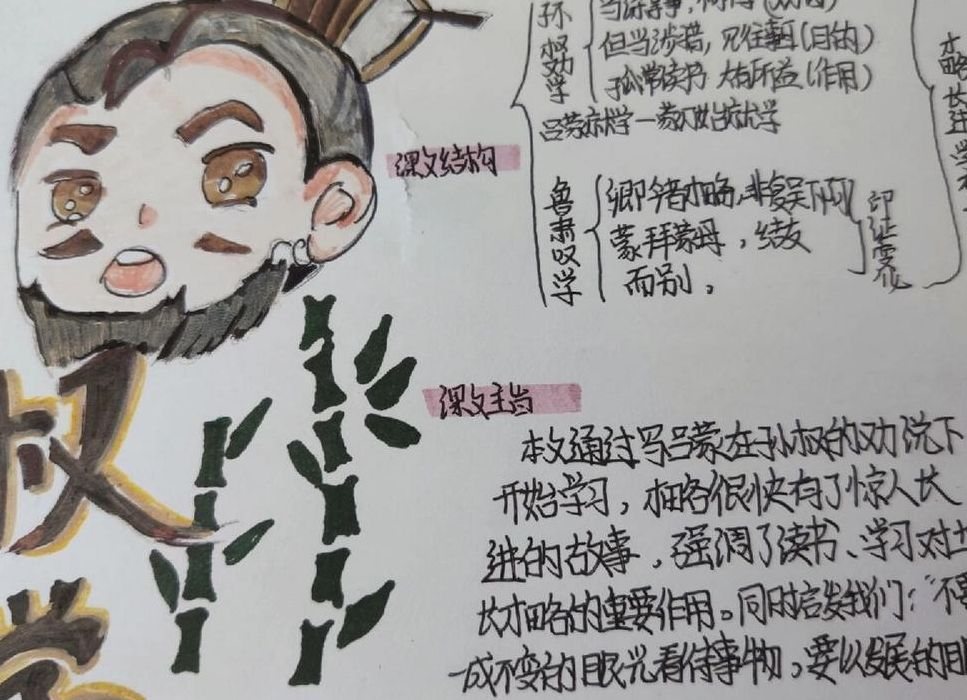 孙权劝学
当涂掌事,
但当涉猎,见往事耳(目的)
孤常读书 大有所益(作用)
吕蒙就学—蒙乃始就学
课文结构
鲁肃叹学
卿今者才略,非复吴下阿
蒙拜蒙母,结友
而别。
印证变化
才略长进
课文主旨
本文通过写吕蒙在孙权的劝说下
开始学习,才略很快有了惊人长
进的故事,强调了读书、学习对
长才略的重要作用。同时启发我们:“不要
一成不变的眼光看待事物,要以发展的眼
权